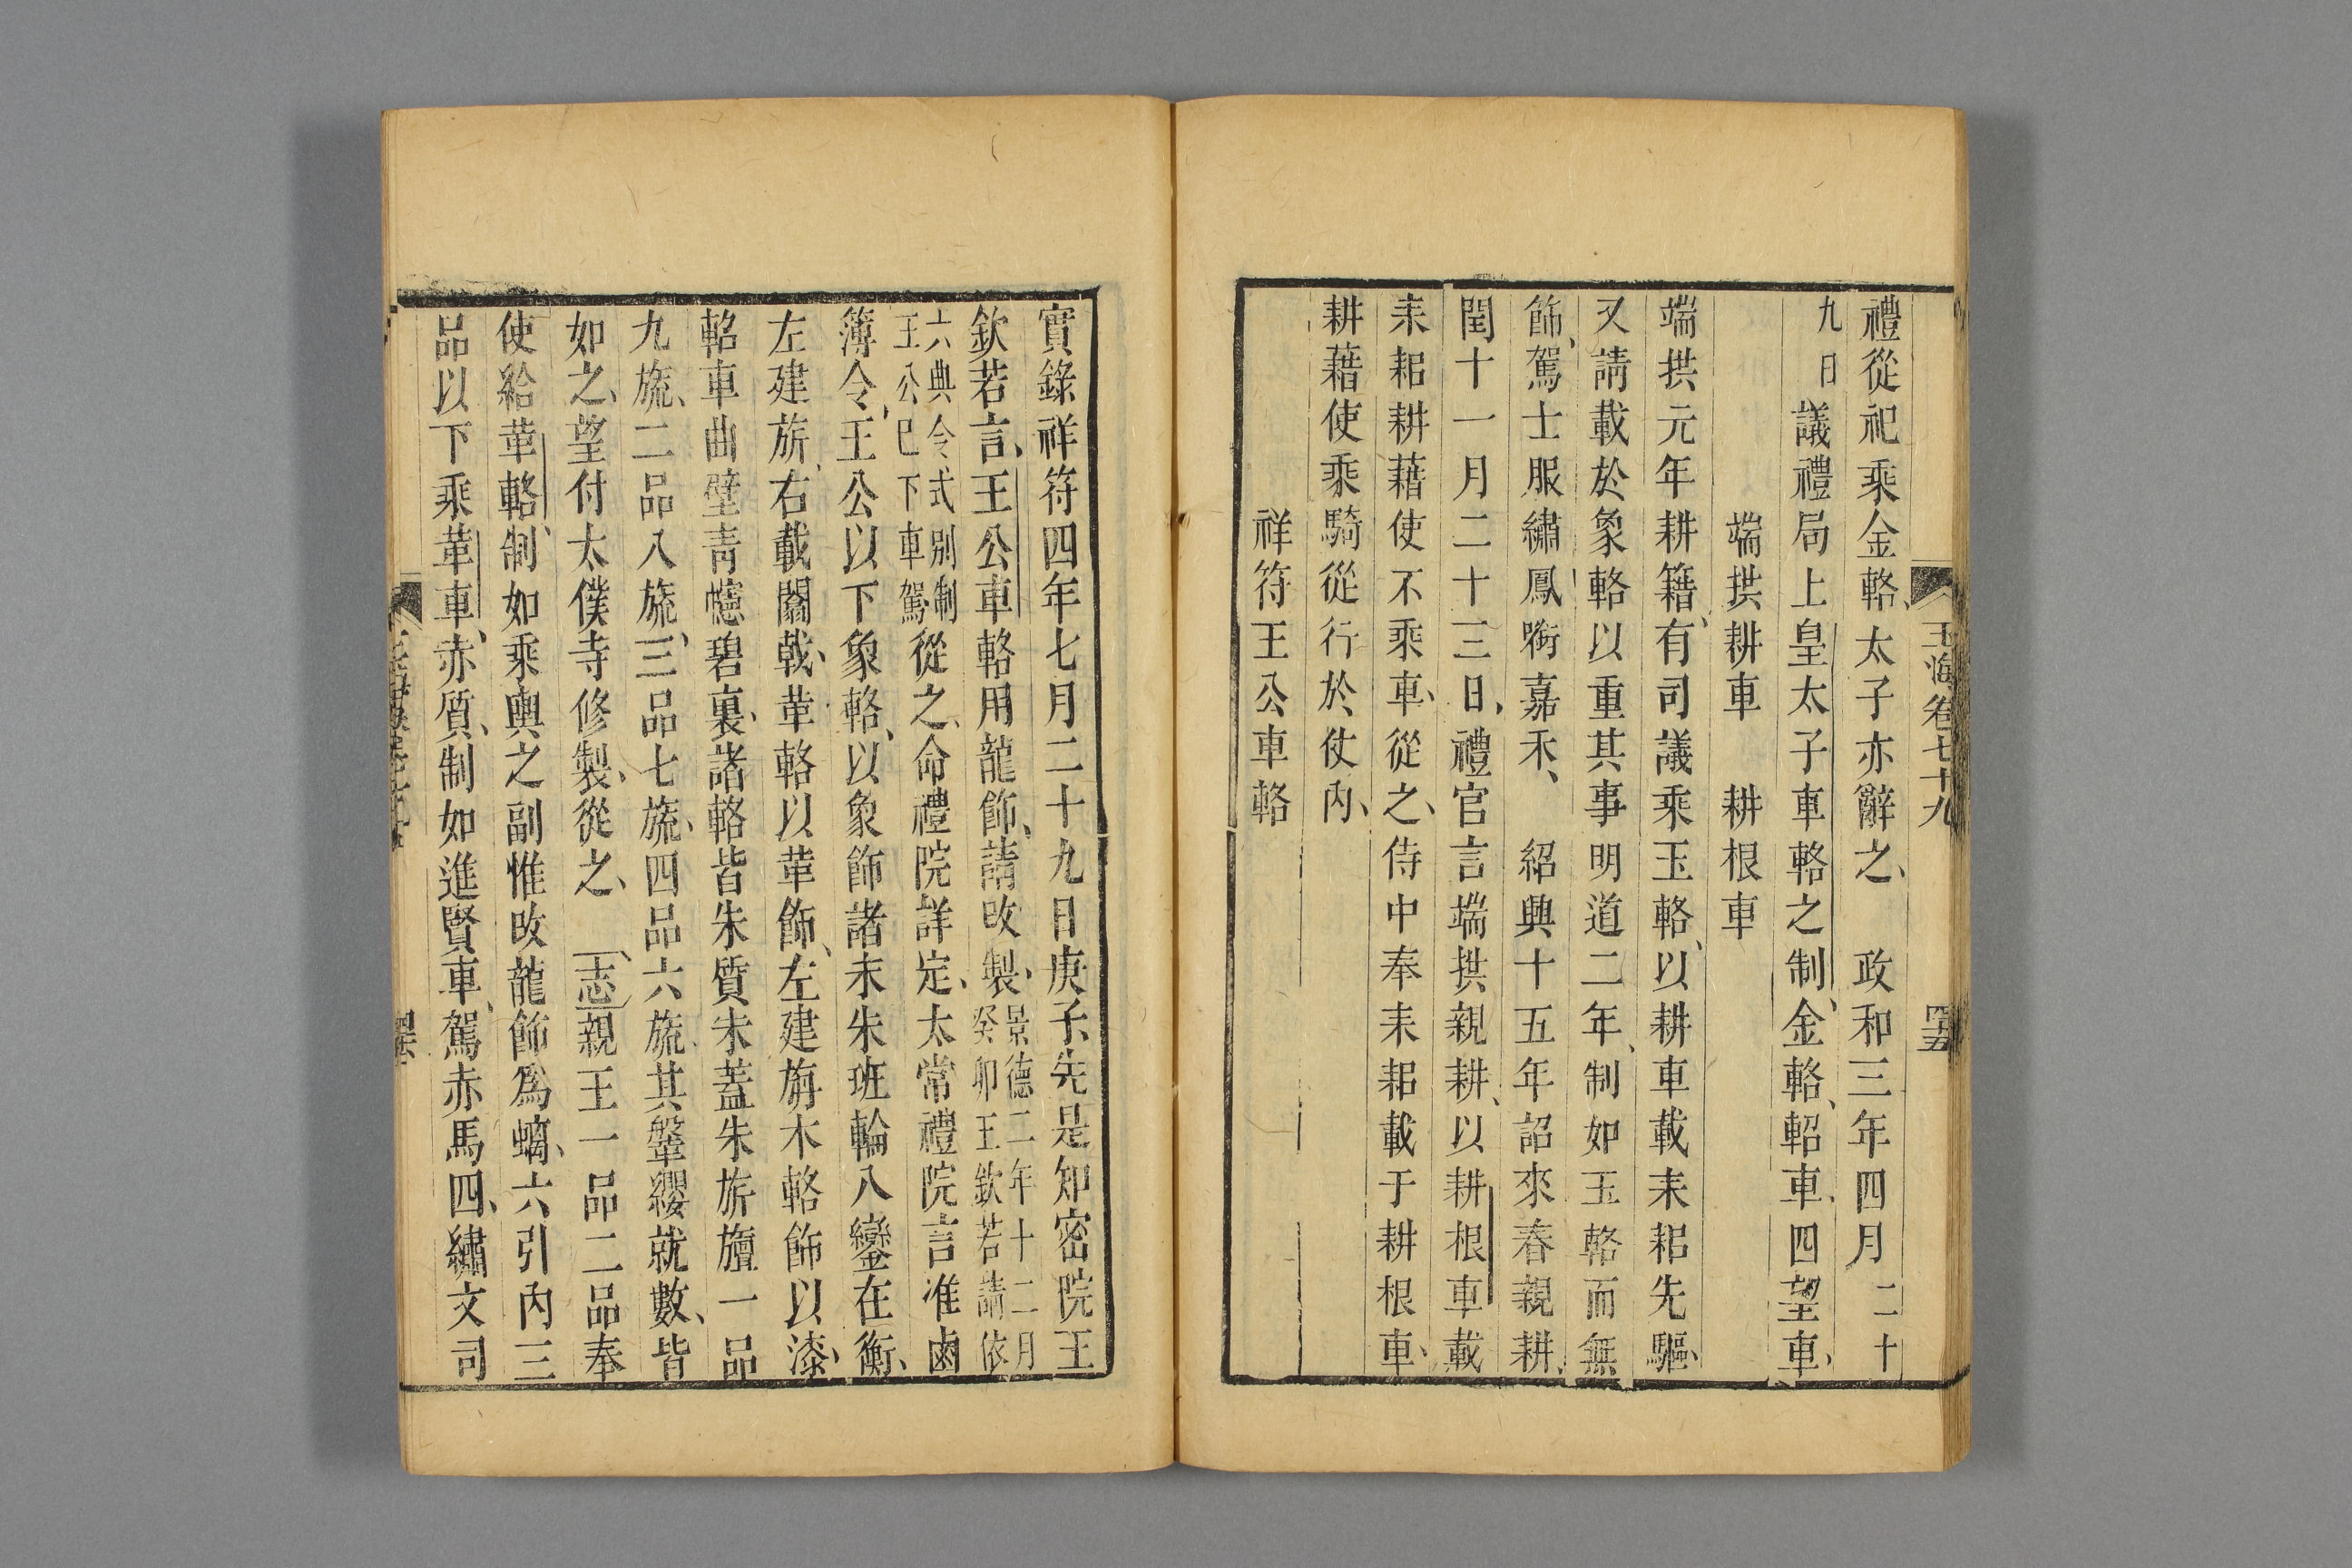 玉海卷七十九 四十五
禮從祀乘金輅、太子亦辭之、 政和三年四月二十
九日議禮局上皇太子車輅之制、金輅、軺車、四望車、
端拱耕車 耕根車
端拱元年耕籍、有司議乘玉輅、以耕車載耒耜先驅、
又請載於象輅以重其事明道二年、制如玉輅而無
飾、駕士服繡鳳銜嘉禾、 紹興十五年詔來春親耕、
閏十一月二十三日、禮官言端拱親耕、以耕根車載
耒耜耕藉使不乘車、從之、侍中奉耒耜載于耕根車、
耕藉使乘騎從行於仗內、
祥符王公車輅
實錄祥符四年七月二十九日庚子先是知密院王
欽若言、王公車輅用龍飾、請改製、景德二年十二月癸卯王欽若請依
六典令式別制王公已下車駕從之、命禮院詳定、太常禮院言准鹵
簿令、王公以下象輅、以象飾諸末朱班輪八鑾在衡、
左建旂、右載闟戟、革輅以革飾、左建旃木輅飾以漆、
軺車曲壁青幰碧裏、諸輅皆朱質朱蓋朱旂旜一品
九旒、二品八旒、三品七旒、四品六旒其鞶纓就數、皆
如之、望付太僕寺修製、從之、 志親王一品二品奉
使給革輅、制如乘輿之副惟改龍飾為螭、六引內三
品以下乘革車、赤質、制如進賢車、駕赤馬四、繡文司